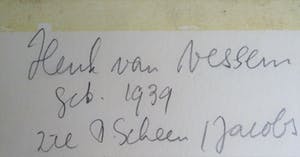 Henk van Nessem
geb. 1939
zie P. Scheen / Jacobs